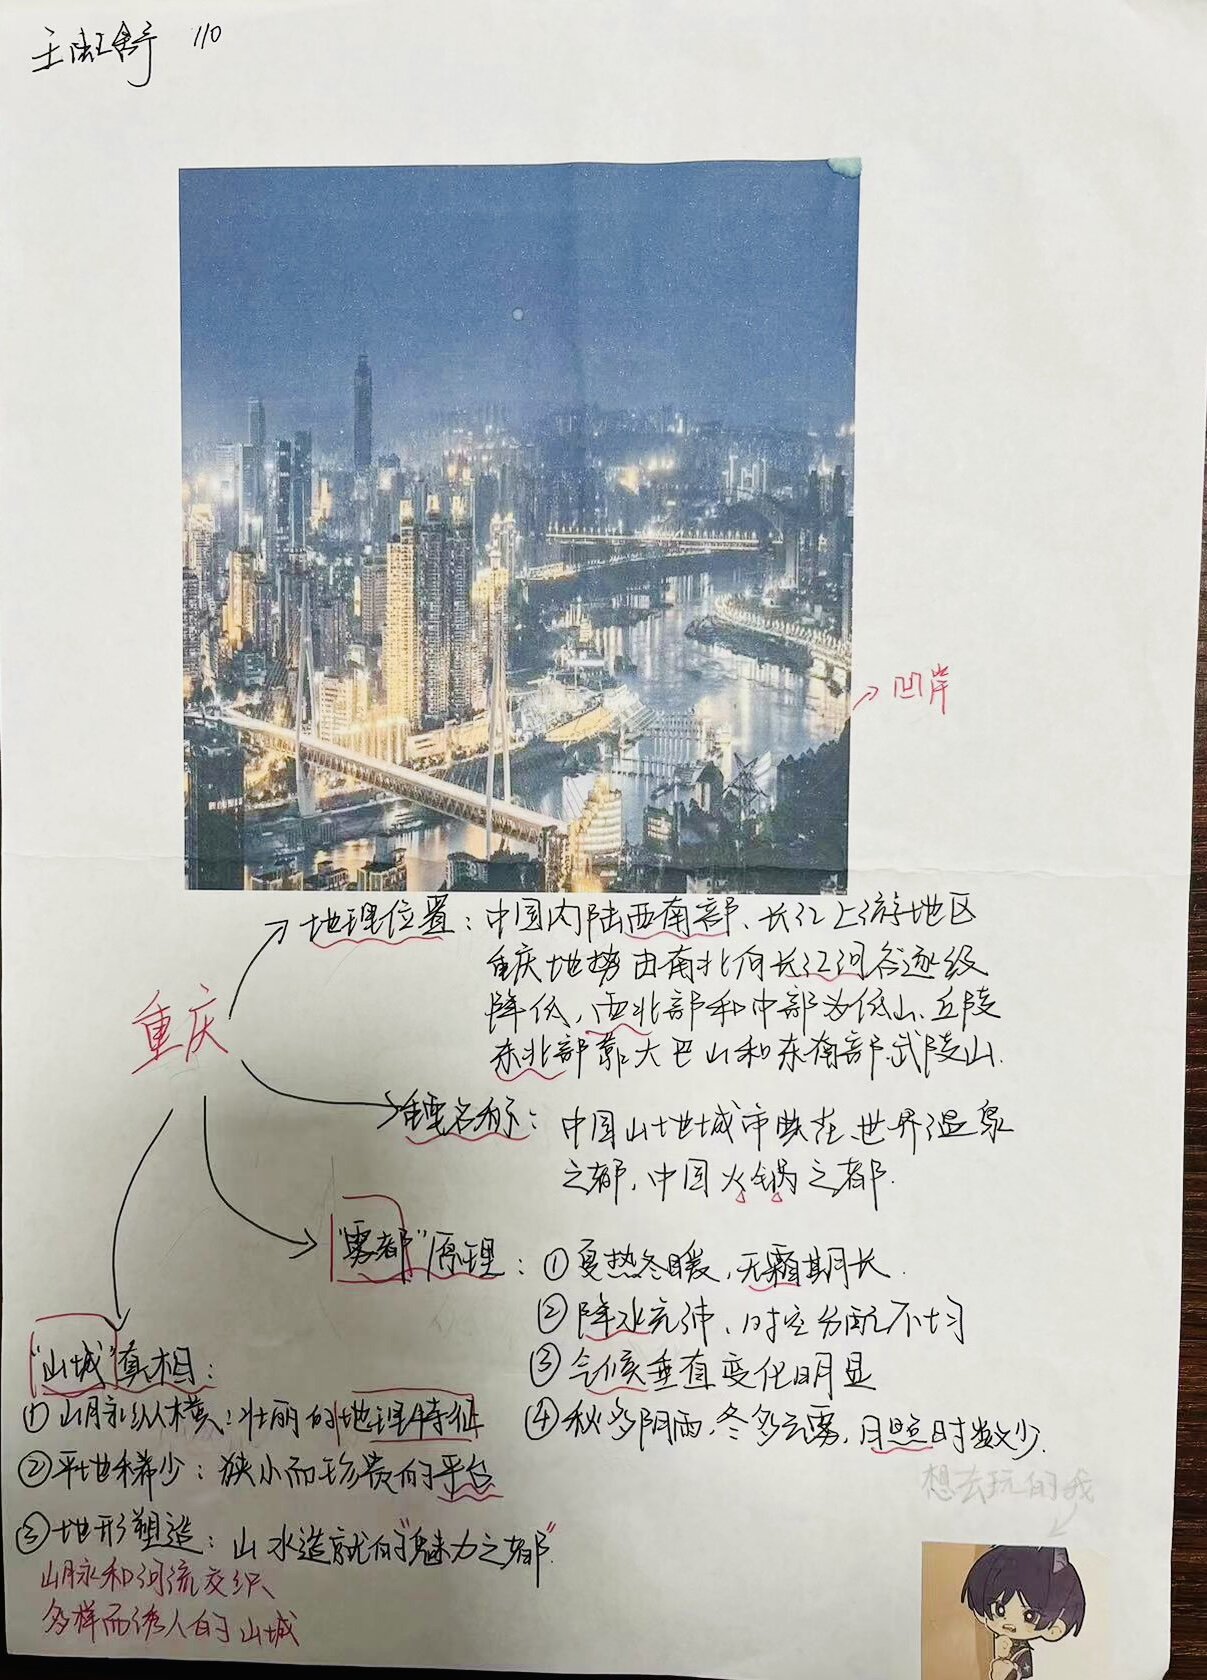 王虹舒 110
凹岸
地理位置：中国内陆西南部、长江上游地区
重庆地势由南北向长江河谷逐级
降低，西北部和中部为低山、丘陵
东北部靠大巴山和东南部武陵山.
重庆
名称：中国山地城市典范、世界温泉
之都，中国火锅之都.
“雾都”原理：①夏热冬暖，无霜期长.
②降水充沛、时空分配不均
③气候垂直变化明显
④秋多阴雨，冬多云雾，日照时数少.
“山城”真相：
①山脉纵横：壮丽的地理特征
②平地稀少：狭小而珍贵的平台
③地形塑造：山水造就的“魅力之都”
山脉和河流交织、
多样而诱人的山城
想去玩的我